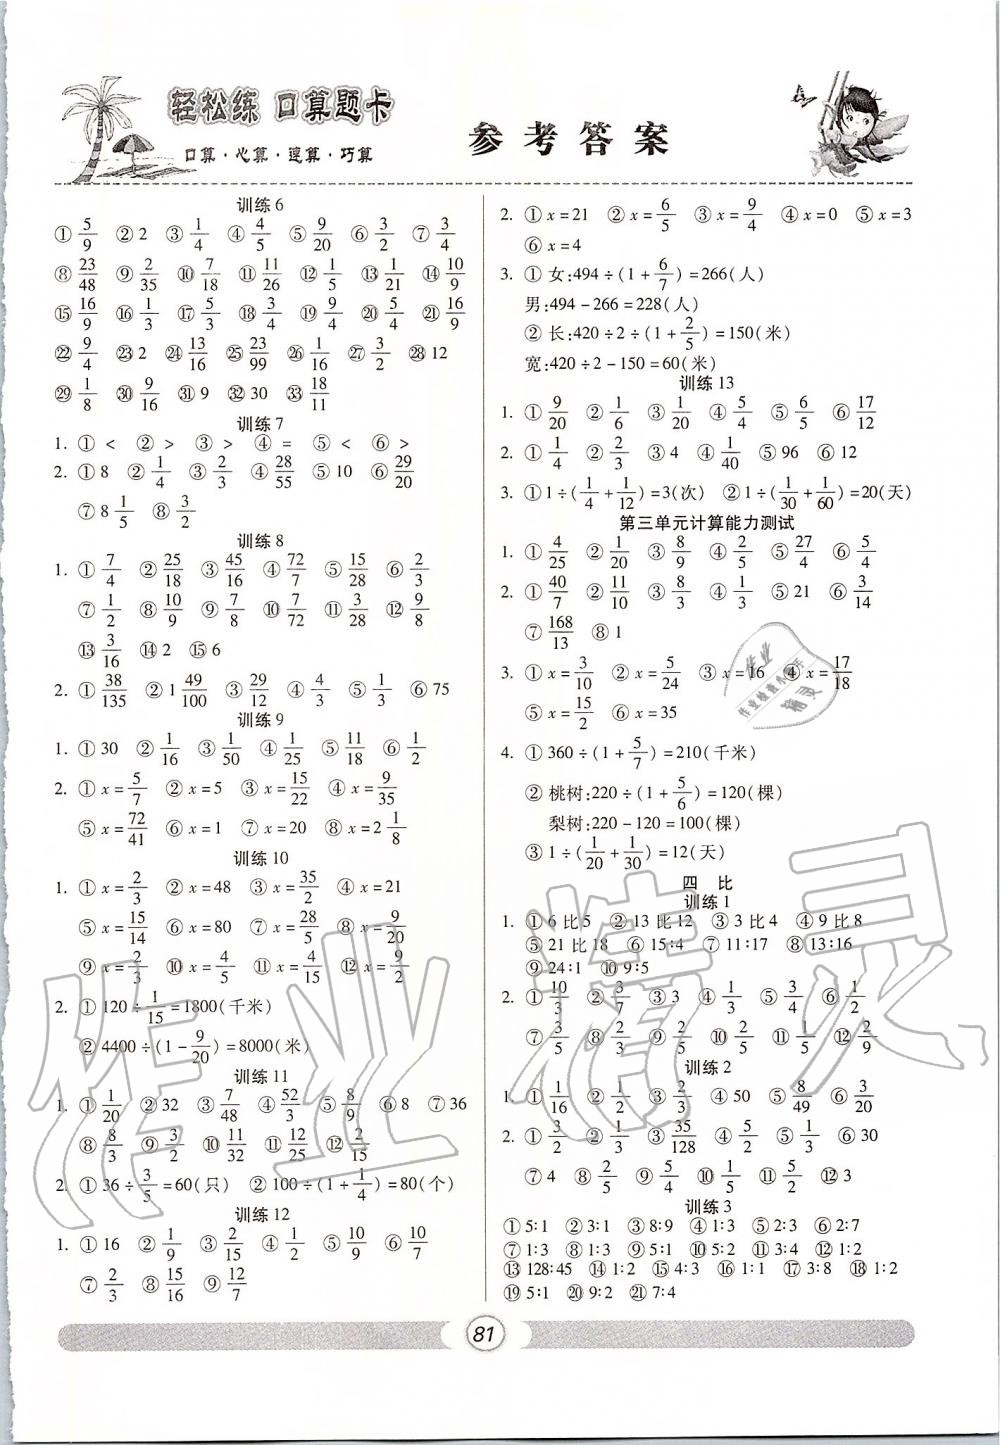 轻松练 口算题卡
口算·心算·速算·巧算
参考答案
训练6
① 5/9 ② 2 ③ 1/4 ④ 4/5 ⑤ 9/20 ⑥ 3/2 ⑦ 3/4
⑧ 23/48 ⑨ 2/35 ⑩ 7/18 ⑪ 11/26 ⑫ 1/5 ⑬ 1/21 ⑭ 10/9
⑮ 16/9 ⑯ 1/3 ⑰ 5/3 ⑱ 3/4 ⑲ 4/9 ⑳ 5/4 ㉑ 16/9
㉒ 9/4 ㉓ 2 ㉔ 13/16 ㉕ 23/99 ㉖ 1/16 ㉗ 3/2 ㉘ 12
㉙ 1/8 ㉚ 9/16 ㉛ 9 ㉜ 30 ㉝ 18/11
训练7
1. ① < ② > ③ > ④ = ⑤ < ⑥ >
2. ① 8 ② 1/4 ③ 2/3 ④ 28/55 ⑤ 10 ⑥ 29/20
⑦ 8 1/5 ⑧ 3/2
训练8
1. ① 7/4 ② 25/18 ③ 45/16 ④ 72/7 ⑤ 15/28 ⑥ 2/3
⑦ 1/2 ⑧ 10/9 ⑨ 7/8 ⑩ 7/72 ⑪ 3/28 ⑫ 9/8
⑬ 3/16 ⑭ 2 ⑮ 6
2. ① 38/135 ② 1 49/100 ③ 29/12 ④ 4/3 ⑤ 1/3 ⑥ 75
训练9
1. ① 30 ② 1/16 ③ 1/50 ④ 1/25 ⑤ 11/18 ⑥ 1/2
2. ① x=5/7 ② x=5 ③ x=15/22 ④ x=9/35
⑤ x=72/41 ⑥ x=1 ⑦ x=20 ⑧ x=2 1/8
训练10
1. ① x=2/3 ② x=48 ③ x=35/2 ④ x=21
⑤ x=15/14 ⑥ x=80 ⑦ x=28/5 ⑧ x=9/20
⑨ x=2/3 ⑩ x=4/5 ⑪ x=4/15 ⑫ x=9/2
2. ① 120÷1/15=1800(千米)
② 4400÷(1-9/20)=8000(米)
训练11
1. ① 1/20 ② 32 ③ 7/48 ④ 52/3 ⑤ 8/9 ⑥ 8 ⑦ 36
⑧ 8/3 ⑨ 3/2 ⑩ 11/32 ⑪ 12/25 ⑫ 2/15
2. ① 36÷3/5=60(只) ② 100÷(1+1/4)=80(个)
训练12
1. ① 16 ② 1/9 ③ 2/15 ④ 1/2 ⑤ 10/9 ⑥ 10/7
⑦ 2/3 ⑧ 15/16 ⑨ 12/7
2. ① x=21 ② x=6/5 ③ x=9/4 ④ x=0 ⑤ x=3
⑥ x=4
3. ① 女:494÷(1+6/7)=266(人)
男:494-266=228(人)
② 长:420÷2÷(1+2/5)=150(米)
宽:420÷2-150=60(米)
训练13
1. ① 9/20 ② 1/6 ③ 1/20 ④ 5/4 ⑤ 6/5 ⑥ 17/12
2. ① 1/4 ② 2/3 ③ 4 ④ 1/40 ⑤ 96 ⑥ 12
3. ① 1÷(1/4+1/12)=3(次) ② 1÷(1/30+1/60)=20(天)
第三单元计算能力测试
1. ① 4/25 ② 1/20 ③ 8/9 ④ 2/5 ⑤ 27/4 ⑥ 5/4
2. ① 40/7 ② 11/10 ③ 8/3 ④ 1/3 ⑤ 21 ⑥ 3/14
⑦ 168/13 ⑧ 1
3. ① x=3/10 ② x=5/24 ③ x=16 ④ x=17/18
⑤ x=15/2 ⑥ x=35
4. ① 360÷(1+5/7)=210(千米)
② 桃树:220÷(1+5/6)=120(棵)
梨树:220-120=100(棵)
③ 1÷(1/20+1/30)=12(天)
四 比
训练1
1. ① 6比5 ② 13比12 ③ 3比4 ④ 9比8
⑤ 21比18 ⑥ 15∶4 ⑦ 11∶17 ⑧ 13∶16
⑨ 24∶1 ⑩ 9∶5
2. ① 10/3 ② 3/7 ③ 3 ④ 1/3 ⑤ 4/5 ⑥ 1/2
⑦ 3/5 ⑧ 2/3 ⑨ 5/8 ⑩ 2/5 ⑪ 1/5 ⑫ 2/9
训练2
1. ① 1/16 ② 1/2 ③ 2/3 ④ 50 ⑤ 8/49 ⑥ 3/20
2. ① 3/2 ② 1/3 ③ 35/128 ④ 5/2 ⑤ 1/2 ⑥ 30
⑦ 4 ⑧ 2/5 ⑨ 5/4 ⑩ 1/2 ⑪ 5/2 ⑫ 3
训练3
① 5∶1 ② 3∶1 ③ 8∶9 ④ 1∶3 ⑤ 2∶5 ⑥ 2∶7
⑦ 1∶3 ⑧ 8∶3 ⑨ 5∶1 ⑩ 5∶2 ⑪ 1∶5 ⑫ 5∶1
⑬ 128∶45 ⑭ 1∶2 ⑮ 4∶3 ⑯ 1∶1 ⑰ 3∶8 ⑱ 1∶2
⑲ 5∶1 ⑳ 9∶2 ㉑ 7∶4
81
作业精灵